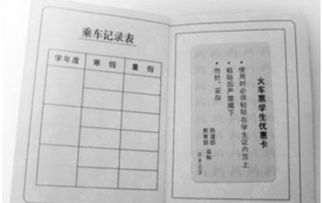 乘车记录表
学年度 寒假 暑假
火车票学生优惠卡
·使用时必须粘贴在学生证内页上
·粘贴后严禁撕下
·勿折、妥存
铁道部
教育部 监制